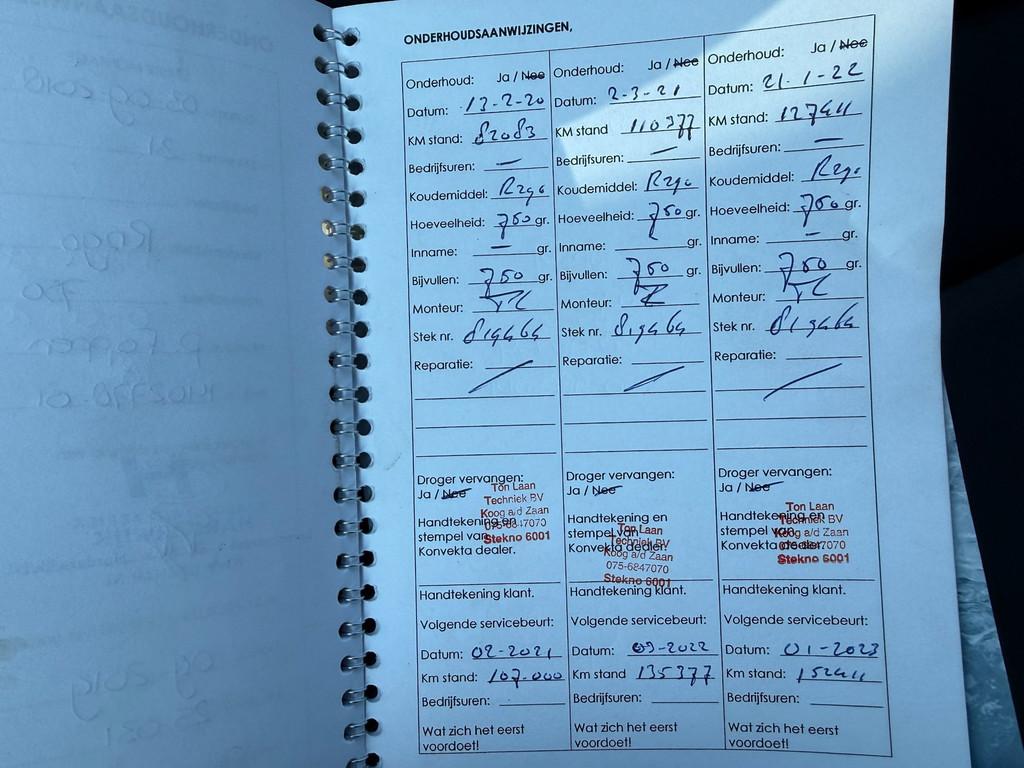 ONDERHOUDSAANWIJZINGEN,
Onderhoud: Ja / Nee
Datum: 13-2-20
KM stand: 82083
Bedrijfsuren: —
Koudemiddel: R290
Hoeveelheid: 750 gr.
Inname: — gr.
Bijvullen: 750 gr.
Monteur:
Stek nr.
Reparatie:
Droger vervangen:
Ja / Nee
Handtekening en
stempel van
Konvekta dealer.
Ton Laan
Techniek BV
Koog a/d Zaan
075-6847070
Stekno 6001
Handtekening klant.
Volgende servicebeurt:
Datum: 02-2021
Km stand: 107-000
Bedrijfsuren:
Wat zich het eerst
voordoet!
Onderhoud: Ja / Nee
Datum: 2-3-21
KM stand 110377
Bedrijfsuren: —
Koudemiddel: R290
Hoeveelheid: 750 gr.
Inname: gr.
Bijvullen: 750 gr.
Monteur:
Stek nr.
Reparatie:
Droger vervangen:
Ja / Nee
Handtekening en
stempel van
Konvekta dealer.
Ton Laan
Techniek BV
Koog a/d Zaan
075-6847070
Stekno 6001
Handtekening klant.
Volgende servicebeurt:
Datum: 03-2022
Km stand 135377
Bedrijfsuren:
Wat zich het eerst
voordoet!
Onderhoud: Ja / Nee
Datum: 21-1-22
KM stand: 127411
Bedrijfsuren: —
Koudemiddel: R290
Hoeveelheid: 750 gr.
Inname: — gr.
Bijvullen: 750 gr.
Monteur:
Stek nr.
Reparatie:
Droger vervangen:
Ja / Nee
Handtekening en
stempel van
Konvekta dealer.
Ton Laan
Techniek BV
Koog a/d Zaan
075-6847070
Stekno 6001
Handtekening klant.
Volgende servicebeurt:
Datum: 01-2023
Km stand: 152411
Bedrijfsuren:
Wat zich het eerst
voordoet!